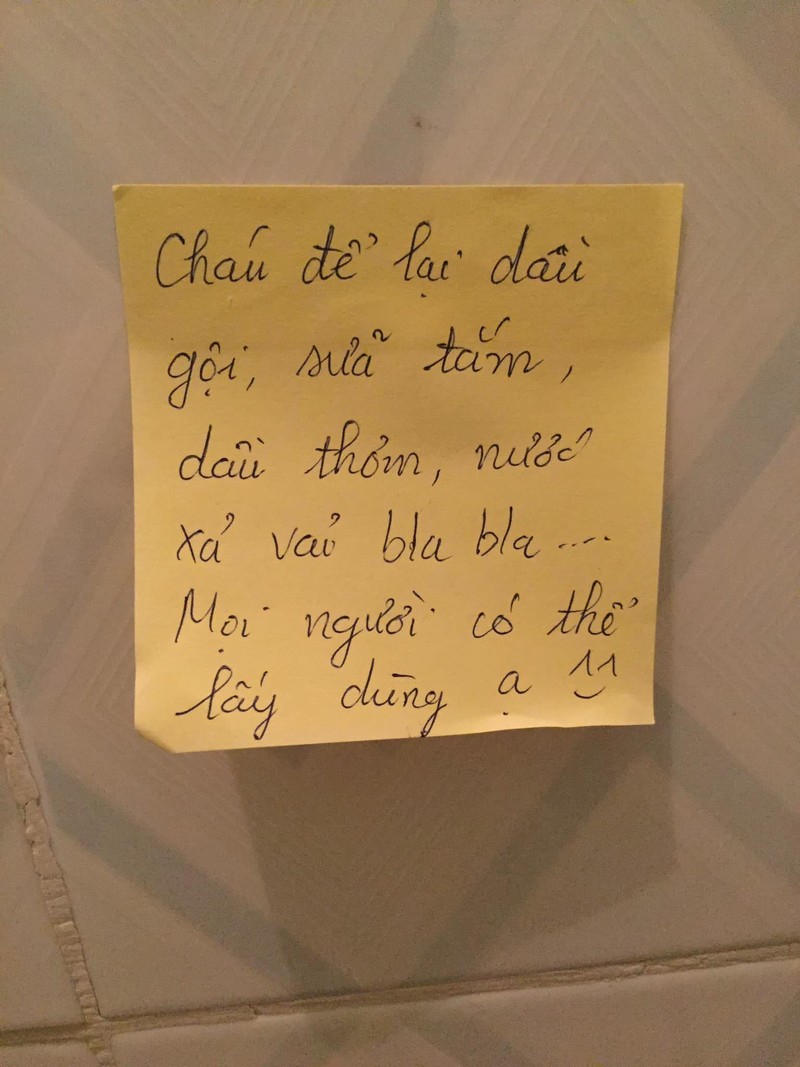 Cháu để lại dầu
gội, sữa tắm,
dầu thơm, nước
xả vải bla bla....
Mọi người có thể
lấy dùng ạ ^^